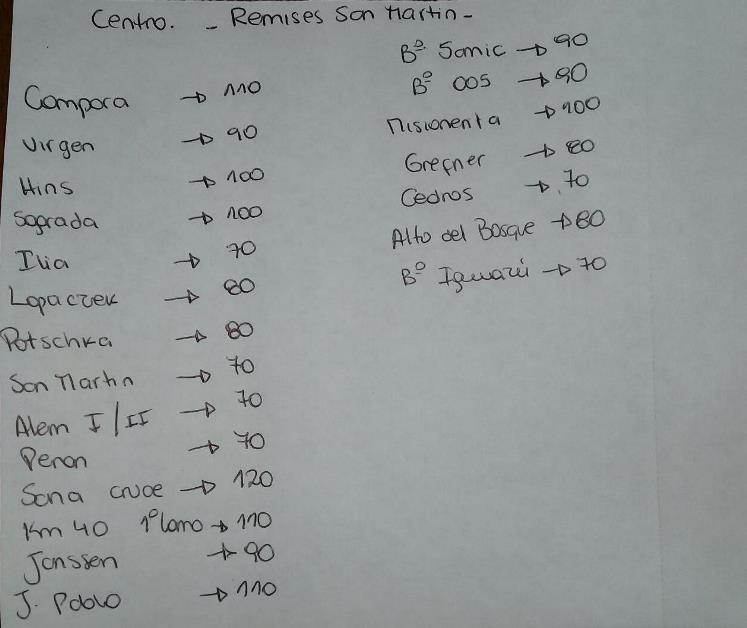 Centro. - Remises San Martin -
Campora → 110
Virgen → 90
Hins → 100
Sagrada → 100
Ilia → 70
Lopaczek → 80
Potschka → 80
San Martin → 70
Alem I/II → 70
Peron → 70
Sana cruce → 120
Km 40 1º lomo → 110
Janssen → 90
J. Pablo → 110
Bº Sanic → 90
Bº 005 → 90
Misionerita → 100
→ 80
Cedros → 70
Alto del Bosque → 80
Bº Iguazú → 70